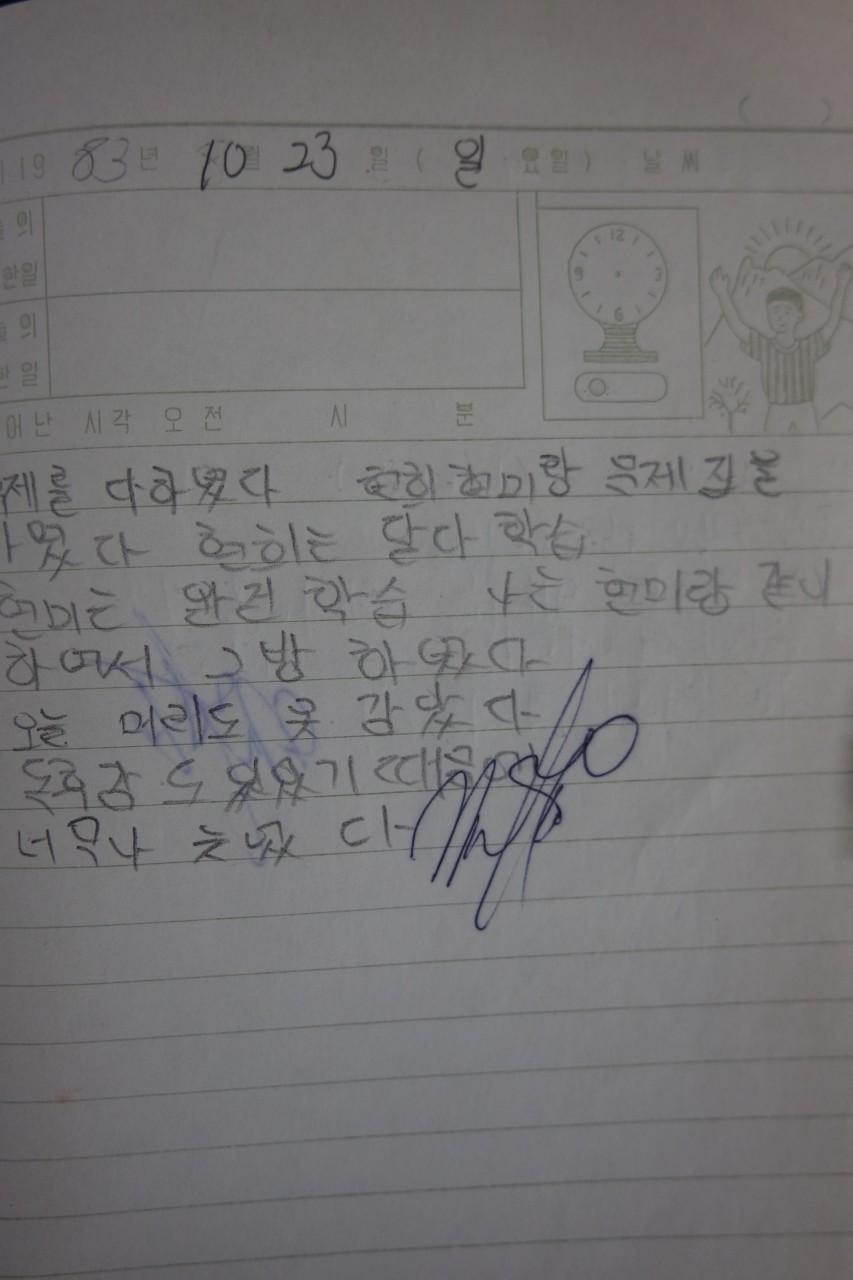 19 83년 10월 23일 ( 일 요일) 날씨
의
한일
의
한일
12
9 3
6
어난 시각 오전 시 분
제를 다하였다 현희현미랑 문제집을
였다 현희는 달다학습
현미는 완전학습 나는 현미랑 같이
하여서 그방 하였다
오늘 머리도 못 감았다
독후감도 있었기때문
너무나 늦었다